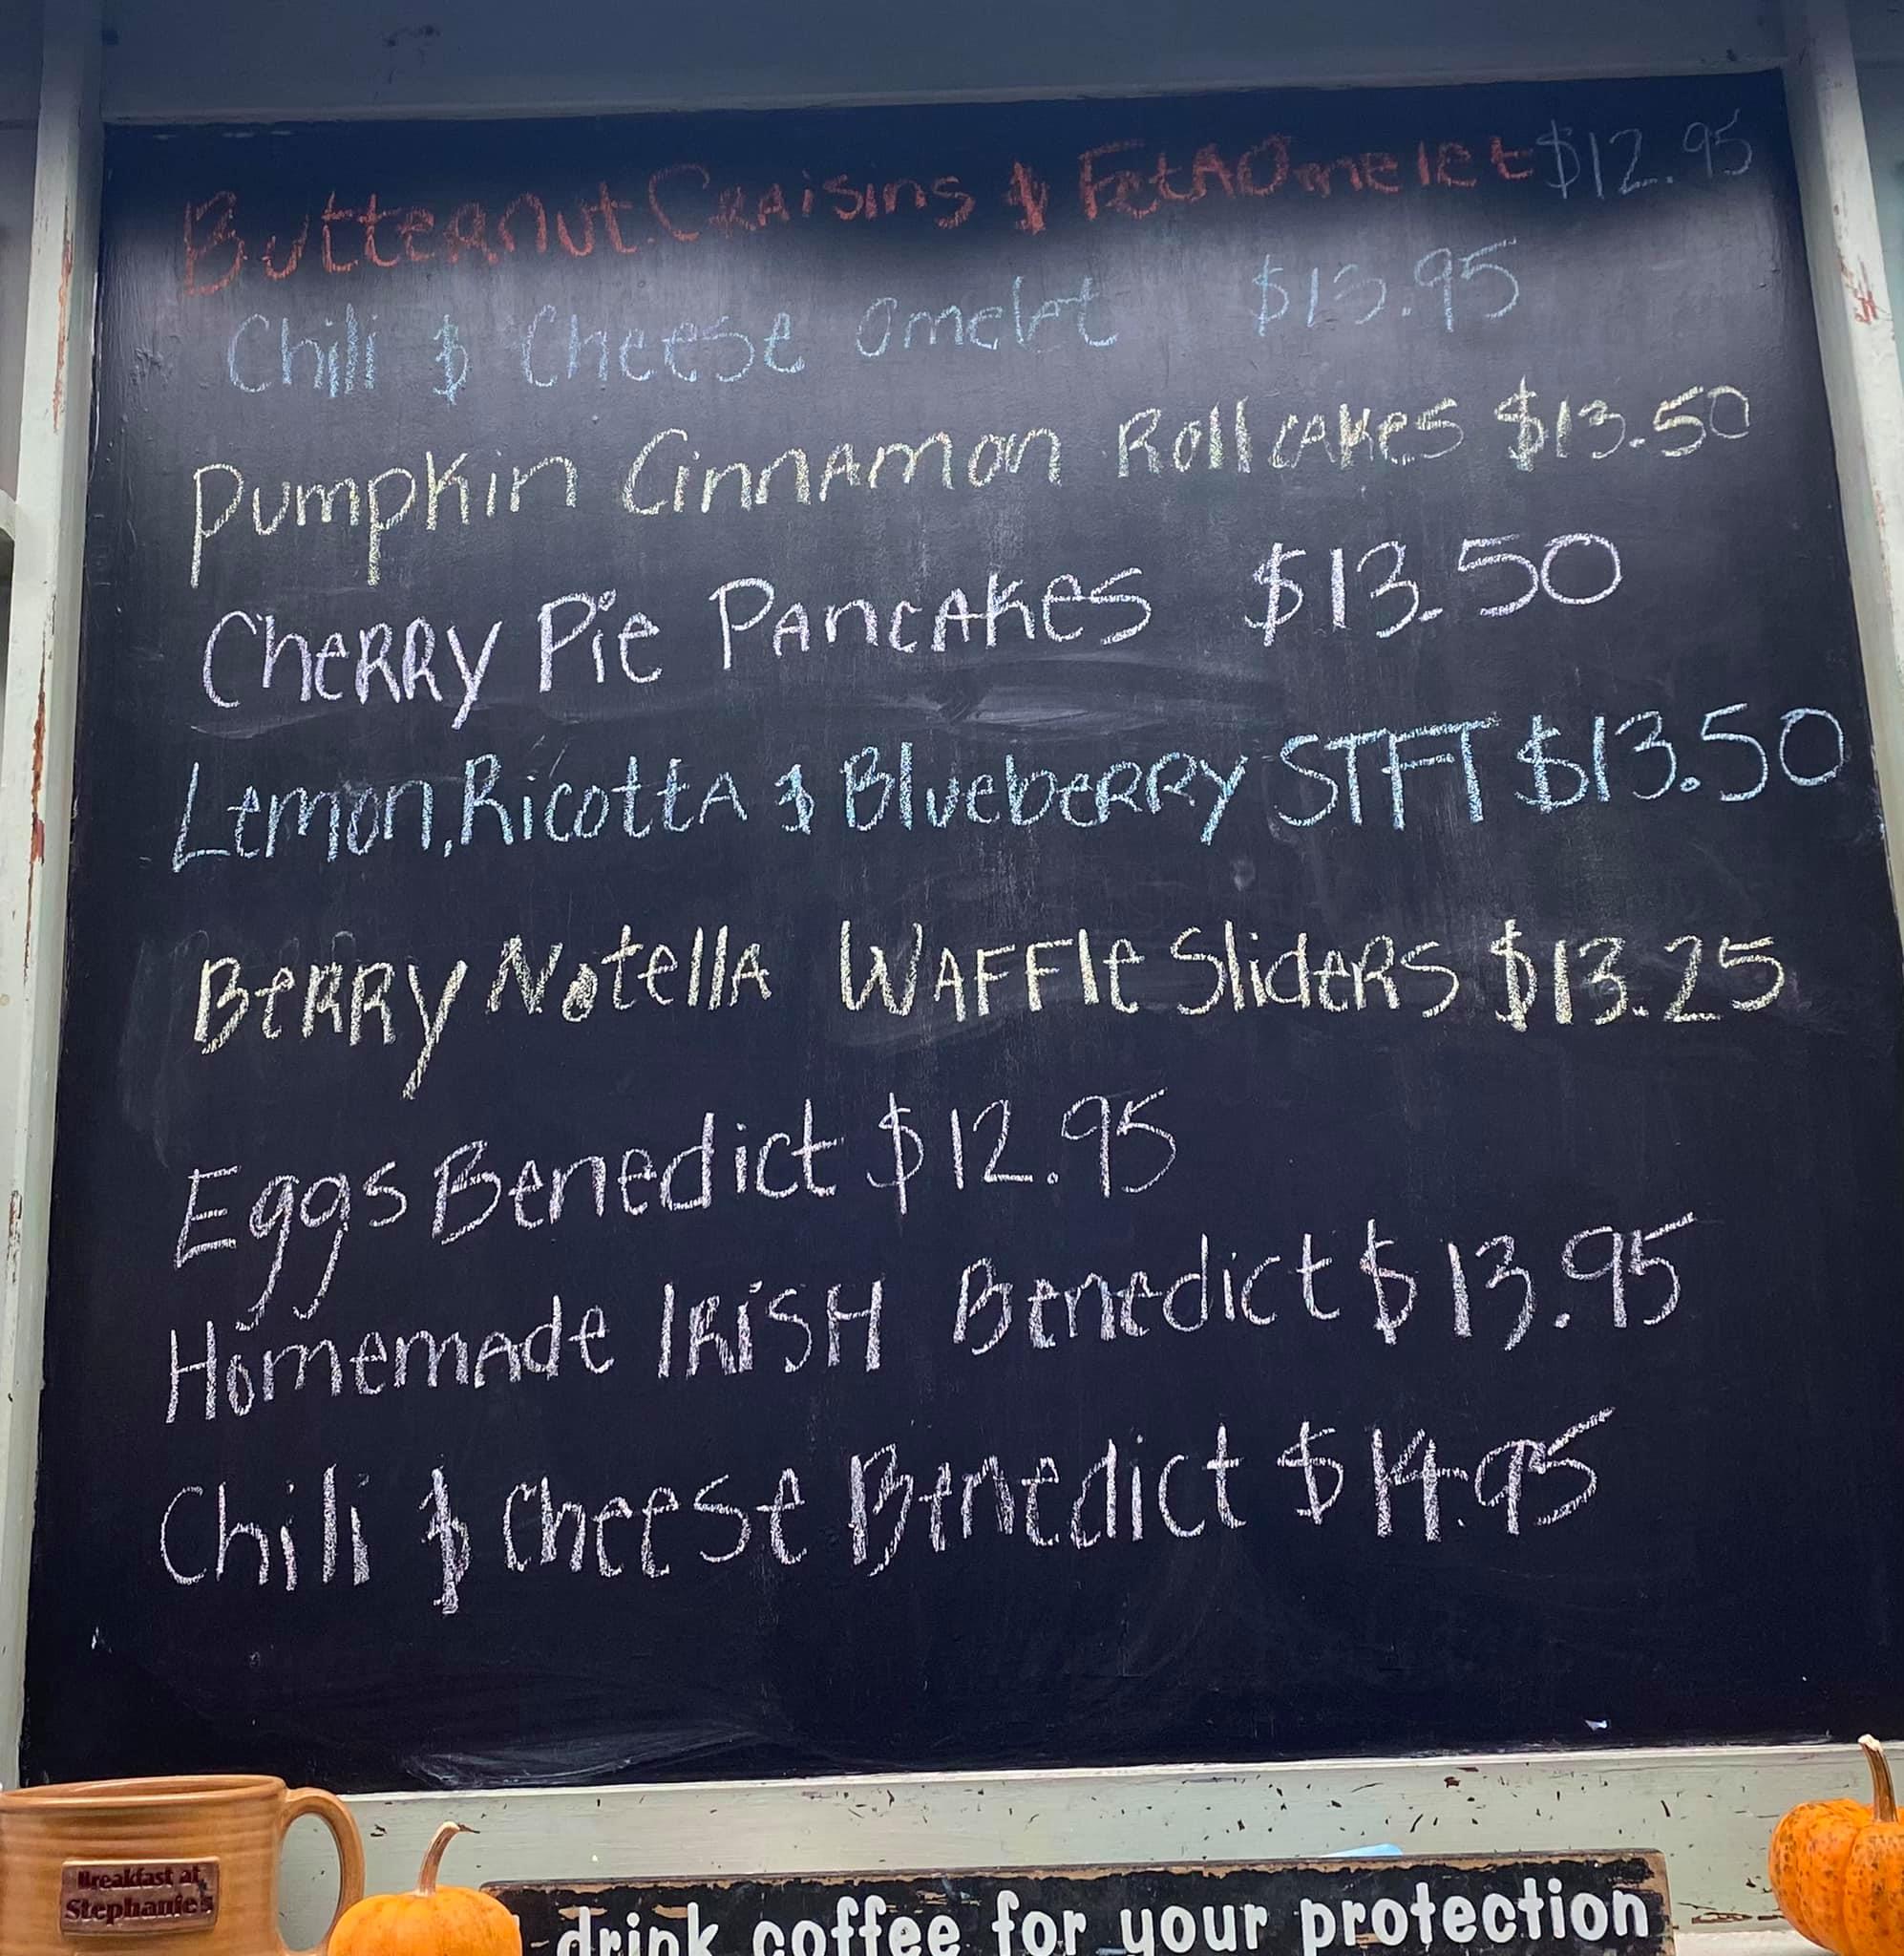 Butternut, Craisins & Feta Omelet $12.95
Chili & Cheese Omelet $13.95
Pumpkin Cinnamon Roll cakes $13.50
Cherry Pie Pancakes $13.50
Lemon, Ricotta & Blueberry STFT $13.50
Berry Notella Waffle Sliders $13.25
Eggs Benedict $12.95
Homemade IRISH Benedict $13.95
Chili & Cheese Benedict $14.95
Breakfast at
Stephanie's
drink coffee for your protection